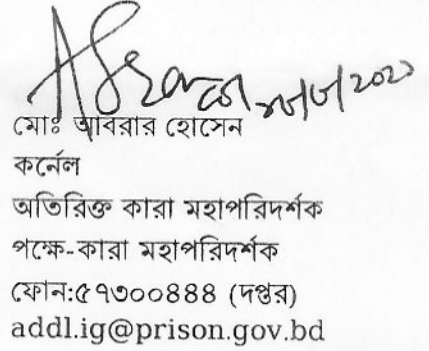 মোঃ আবরার হোসেন
কর্নেল
অতিরিক্ত কারা মহাপরিদর্শক
পক্ষে-কারা মহাপরিদর্শক
ফোন:৫৭৩০০৪৪৪ (দপ্তর)
addl.ig@prison.gov.bd